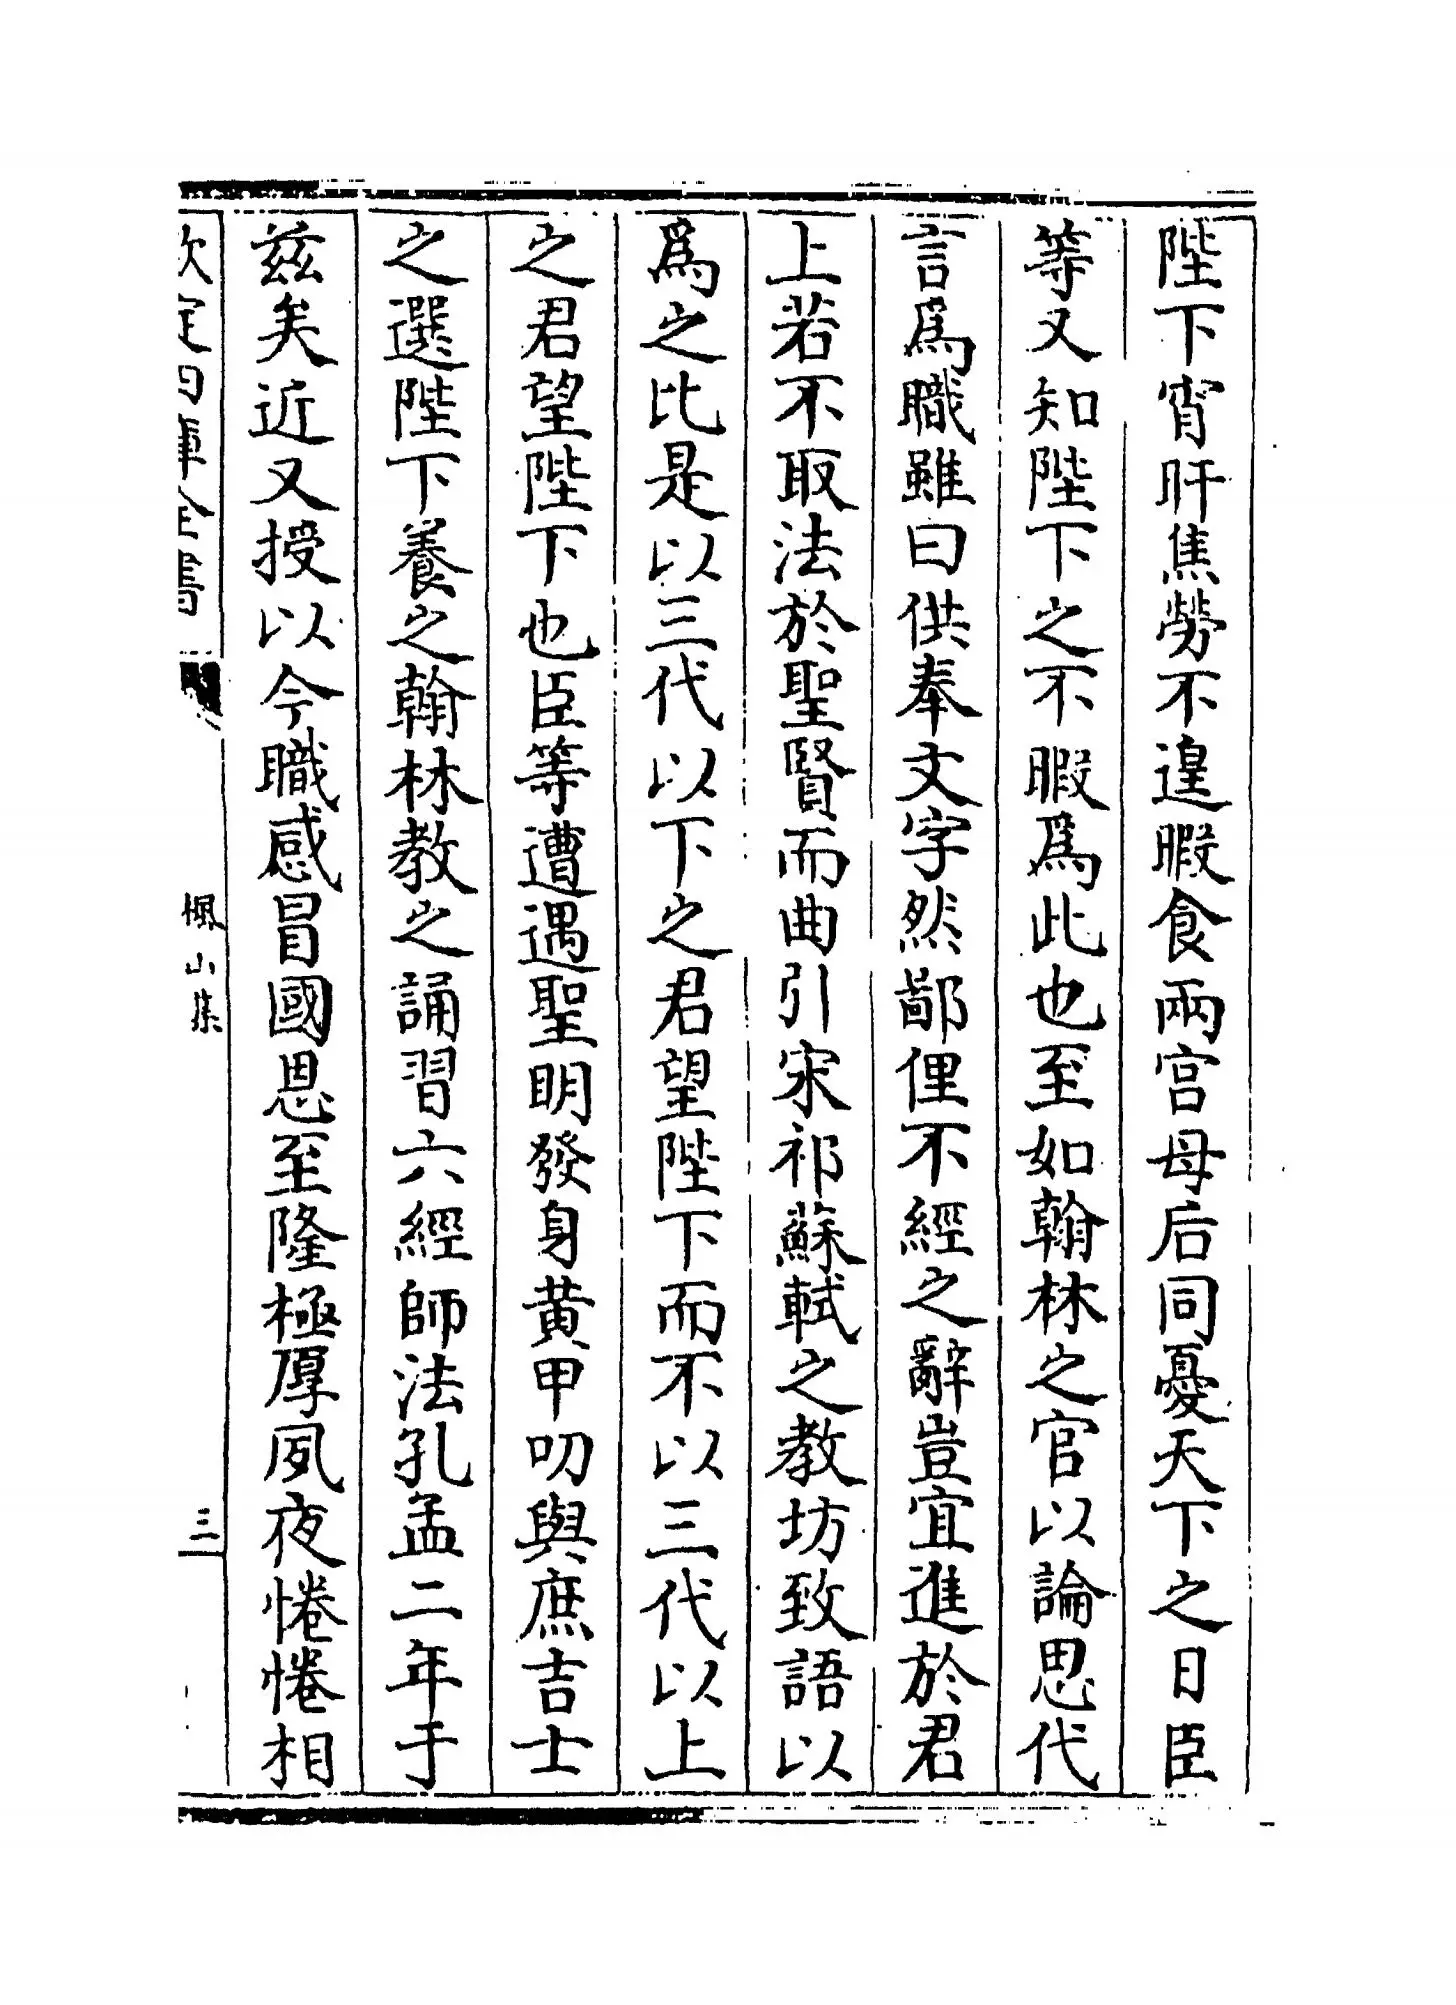 陛下宵旰焦勞不遑暇食兩宫母后同憂天下之日臣
等又知陛下之不暇爲此也至如翰林之官以論思代
言爲職雖曰供奉文字然鄙俚不經之辭豈宜進於君
上若不取法於聖賢而曲引宋祁蘇軾之教坊致語以
爲之比是以三代以下之君望陛下而不以三代以上
之君望陛下也臣等遭遇聖明發身黄甲叨與庶吉士
之選陛下養之翰林教之誦習六經師法孔孟二年于
兹矣近又授以今職感冒國恩至隆極厚夙夜惓惓相
欽定四庫全書
楓山集
三